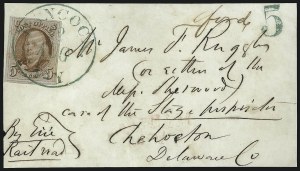 NCOCK
5
5 5
Mr James F. Ruggles
(or either of the
Mess. Sherwood)
care of the Stage proprietor
Chehocton
Delaware Co
By Erie
Railroad